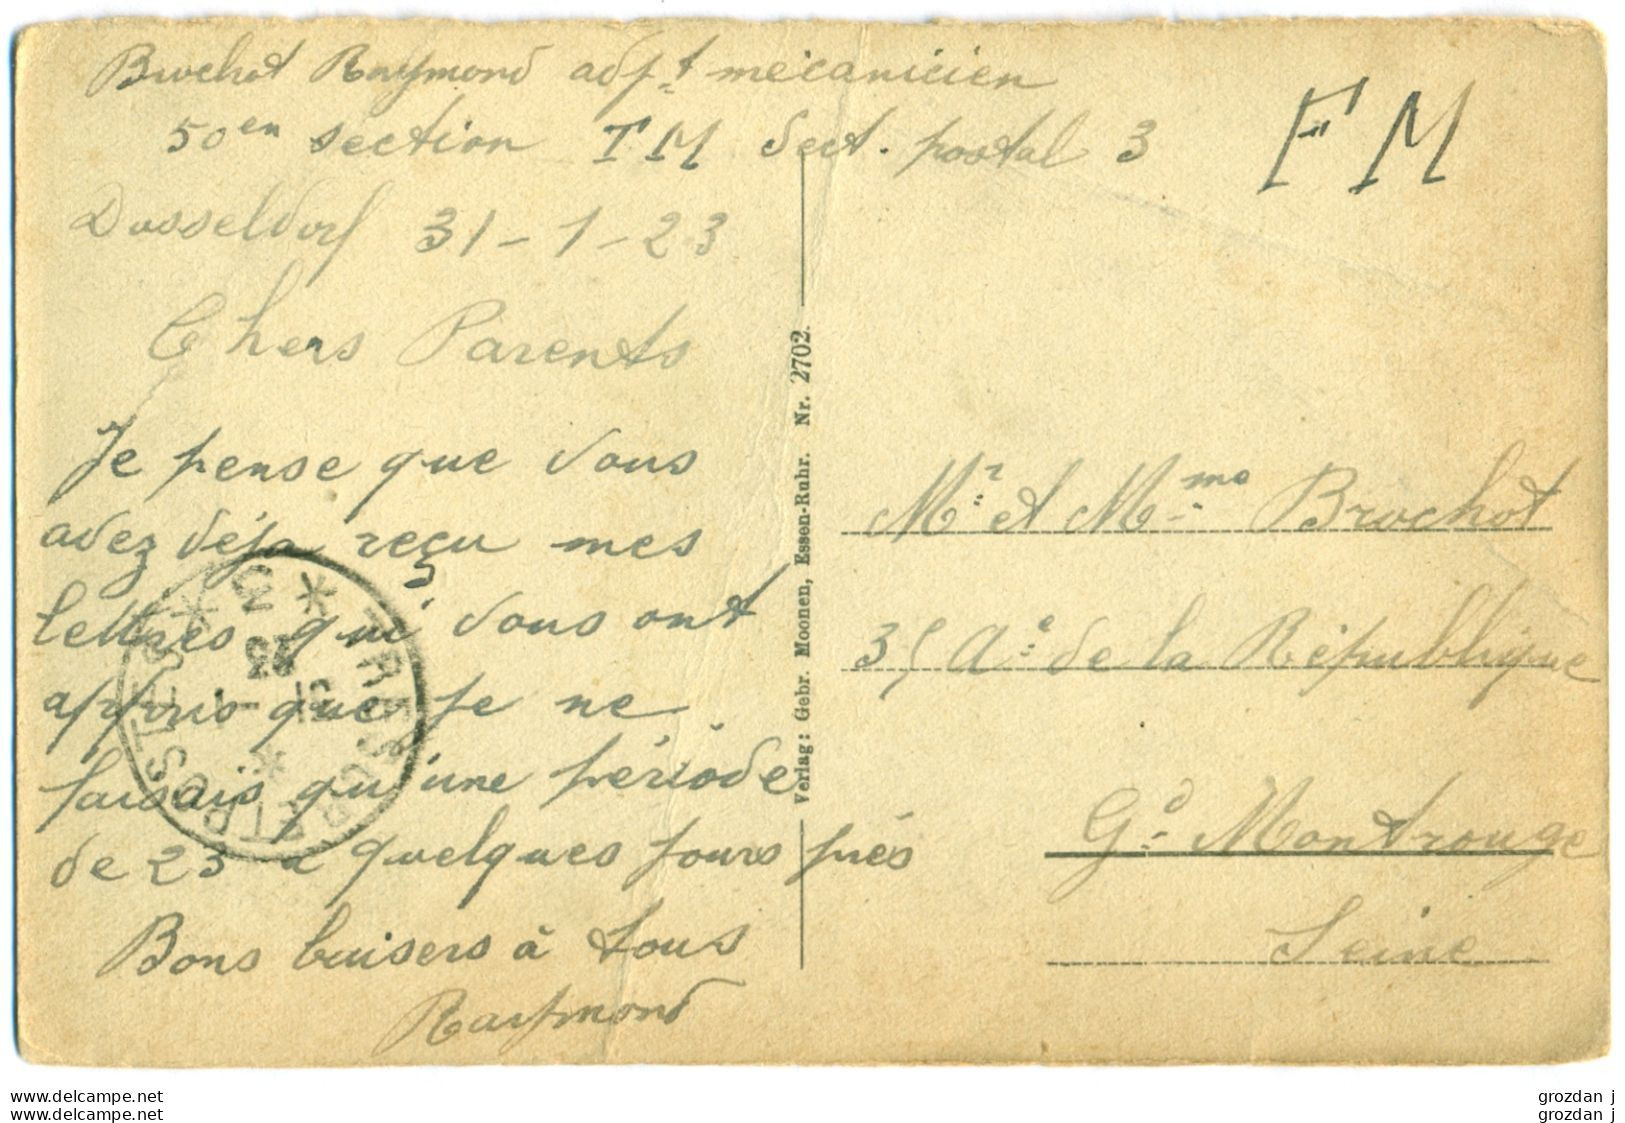 Bruchot Raymond adjt mécanicien
50en section TM Sect. postal 3
FM
Dusseldorf 31-1-23
Chers Parents
Je pense que vous
avez déja reçu mes
lettres qui vous ont
appris que je ne
faisais qu'une période
de 23 a quelques jours prés
Bons baisers à tous
Raymond
Verlag: Gebr. Moonen, Essen-Ruhr. Nr. 2702.
Mr et Mme Bruchot
35 Ae de la République
Gd Montrouge
Seine
TRESOR ET POSTES
* 3 *
31 - 1
23
www.delcampe.net
www.delcampe.net
grozdan j
grozdan j